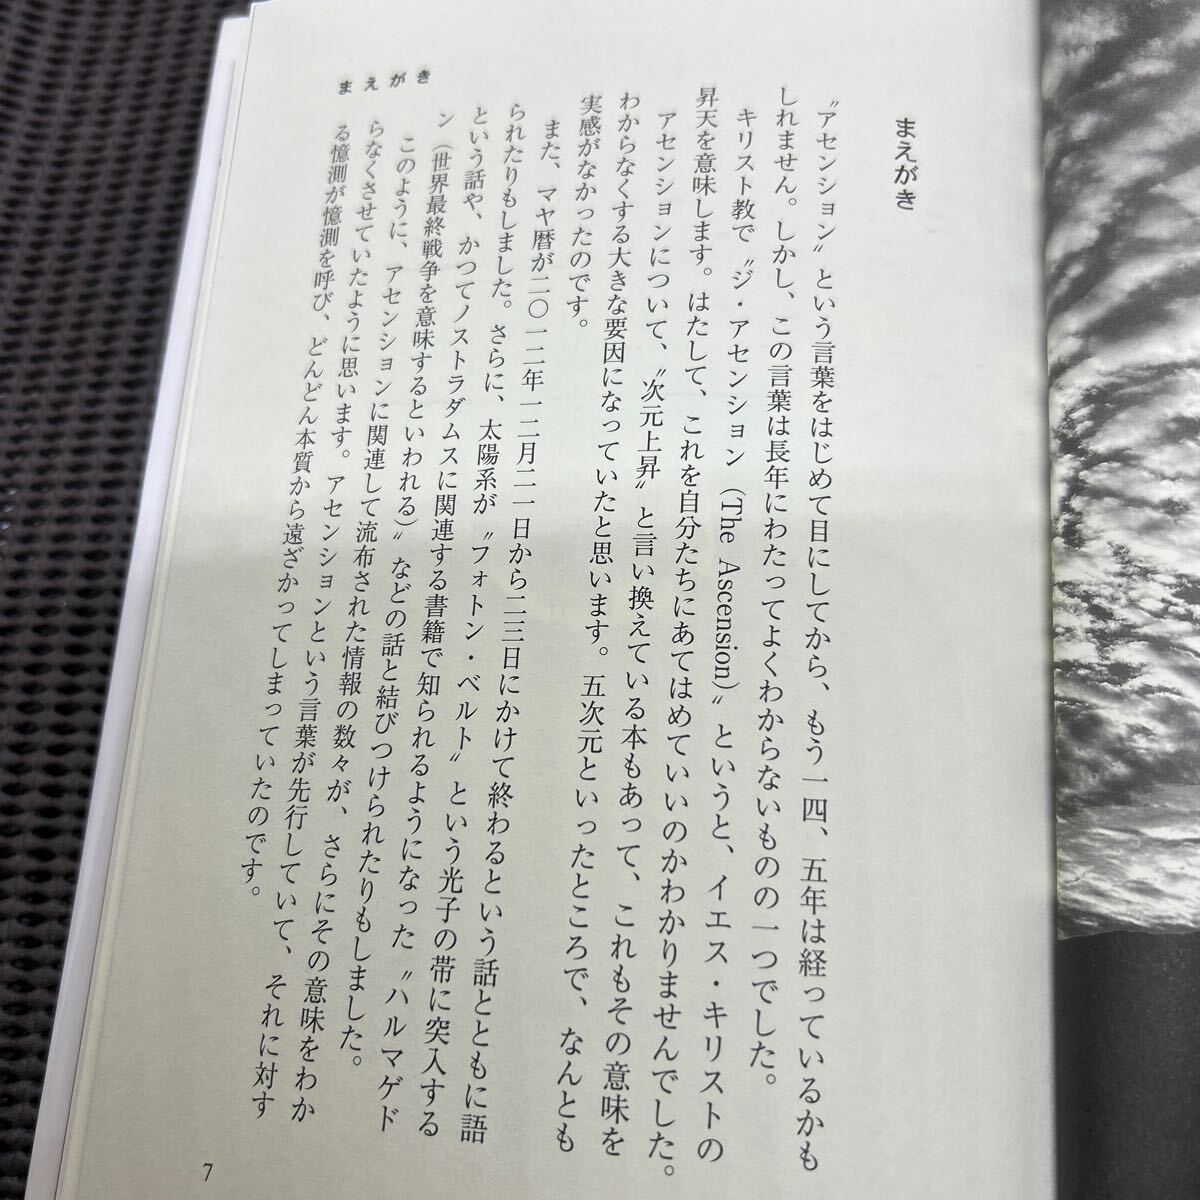 まえがき
〝アセンション〟という言葉をはじめて目にしてから、もう一四、五年は経っているかも
しれません。しかし、この言葉は長年にわたってよくわからないものの一つでした。
キリスト教で〝ジ・アセンション（The Ascension）〟というと、イエス・キリストの
昇天を意味します。はたして、これを自分たちにあてはめていいのかわかりませんでした。
アセンションについて、〝次元上昇〟と言い換えている本もあって、これもその意味を
わからなくする大きな要因になっていたと思います。五次元といったところで、なんとも
実感がなかったのです。
また、マヤ暦が二〇一二年一二月二一日から二三日にかけて終わるという話とともに語
られたりもしました。さらに、太陽系が〝フォトン・ベルト〟という光子の帯に突入する
という話や、かつてノストラダムスに関連する書籍で知られるようになった〝ハルマゲド
ン（世界最終戦争を意味するといわれる）〟などの話と結びつけられたりもしました。
このように、アセンションに関連して流布された情報の数々が、さらにその意味をわか
らなくさせていたように思います。アセンションという言葉が先行していて、それに対す
る憶測が憶測を呼び、どんどん本質から遠ざかってしまっていたのです。
まえがき
7